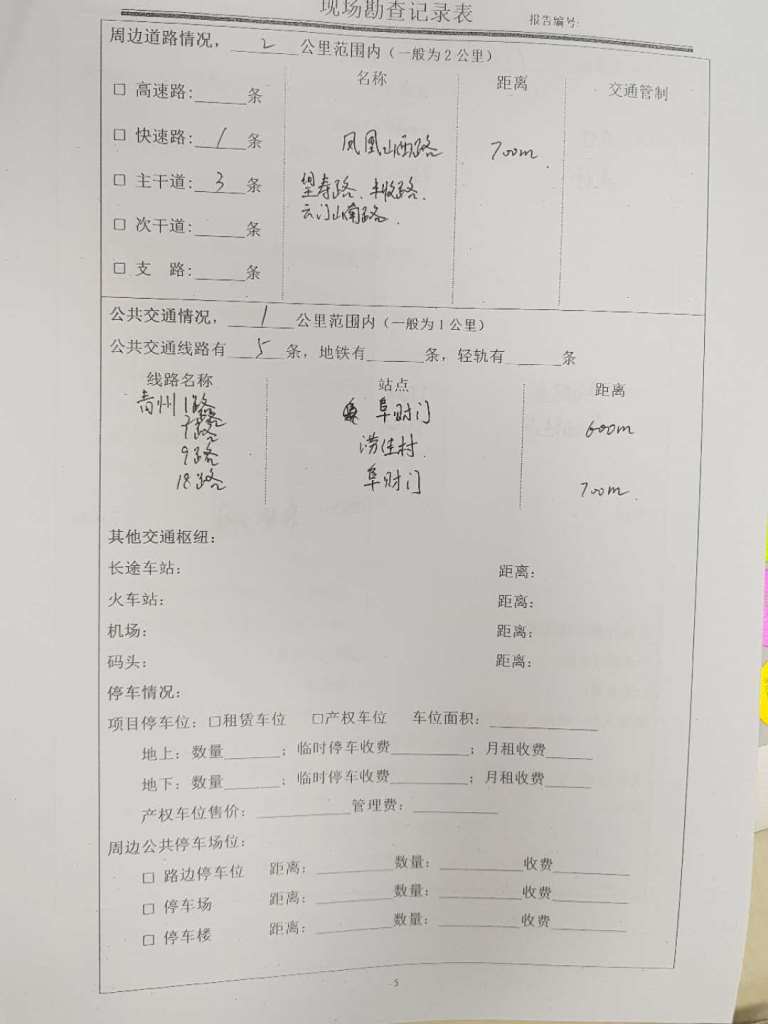 现场勘查记录表
报告编号:
周边道路情况，2公里范围内（一般为2公里）
名称 距离 交通管制
□ 高速路:______条
□ 快速路: 1 条 凤凰山西路 700m
□ 主干道: 3 条 堡寿路、丰收路、
云门山南路、
□ 次干道:______条
□ 支 路:______条
公共交通情况，1公里范围内（一般为1公里）
公共交通线路有 5 条，地铁有______条，轻轨有______条
线路名称 站点 距离
青州1路 阜财门 600m
7路
9路 涝洼村
18路 阜财门 700m
其他交通枢纽:
长途车站: 距离:
火车站: 距离:
机场: 距离:
码头: 距离:
停车情况:
项目停车位: □租赁车位 □产权车位 车位面积:____________
地上: 数量______; 临时停车收费________; 月租收费_____
地下: 数量______; 临时停车收费________; 月租收费_____
产权车位售价: __________管理费: _________
周边公共停车场位:
□ 路边停车位 距离: ________数量: _________收费________
□ 停车场 距离: ________数量: _________收费________
□ 停车楼 距离: ________数量: _________收费________
5